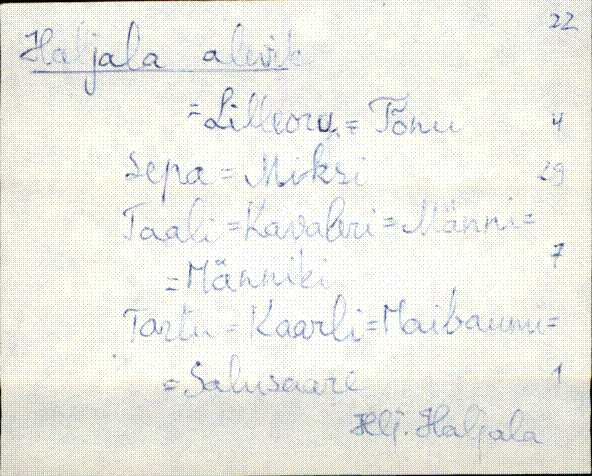 22
Haljala alevik
= Lilleoru = Tõnu 4
Sepa = Miksi 29
Taali = Kavaleri = Männi =
= Männiki 7
Tartu = Kaarli = Maibaumi =
= Salusaare 1
Hlj. Haljala